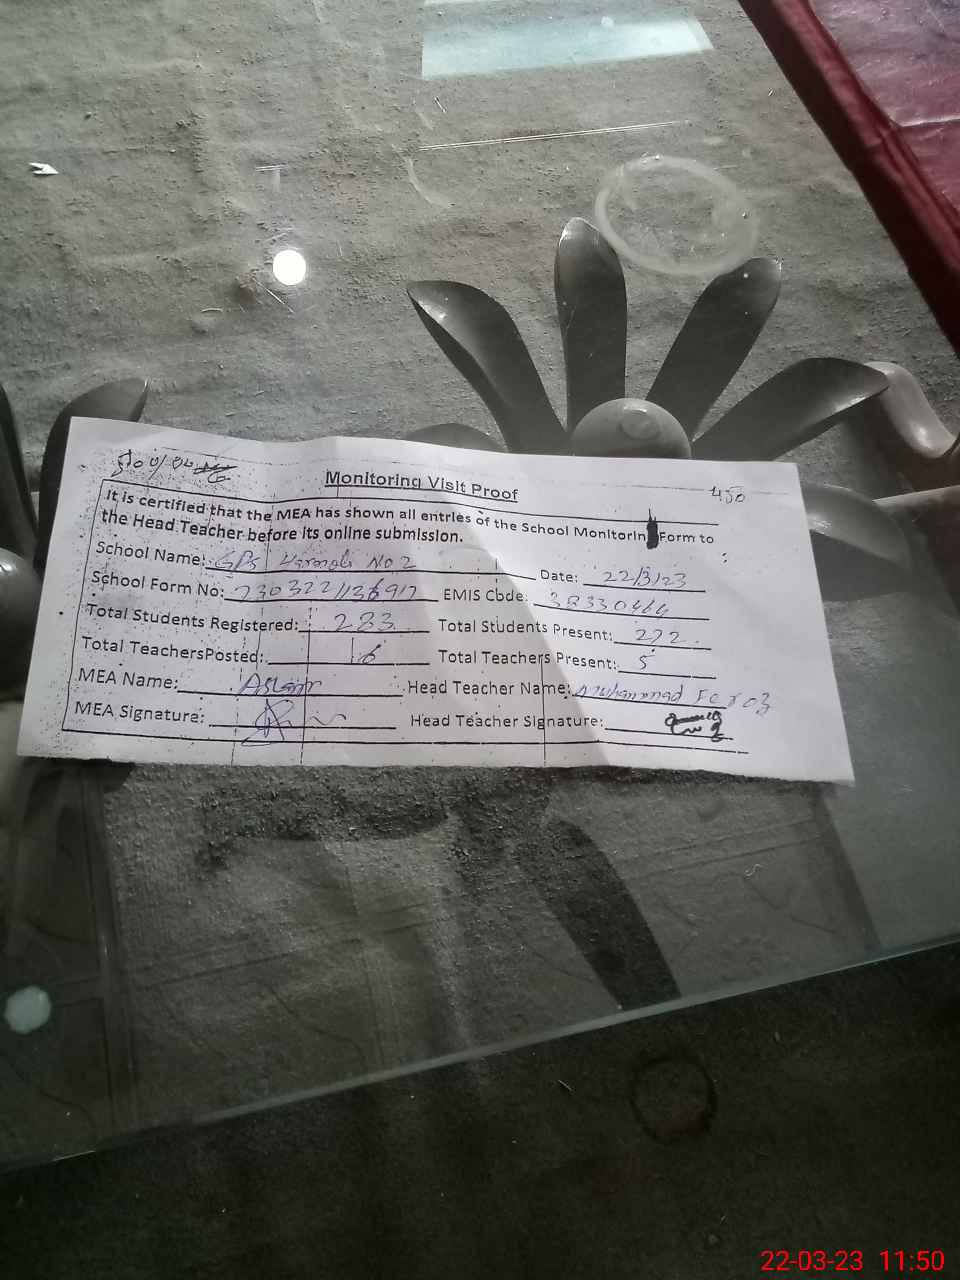 Monitoring Visit Proof 450
It is certified that the MEA has shown all entries of the School Monitorin Form to
the Head Teacher before its online submission.
School Name: GPS No 2 Date: 22/3/23
School Form No: EMIS Code: 38330464
Total Students Registered: 283 Total Students Present: 272
Total TeachersPosted: 6 Total Teachers Present: 5
MEA Name: Aslam Head Teacher Name: Muhammad Feroz
MEA Signature: Head Teacher Signature:
22-03-23 11:50